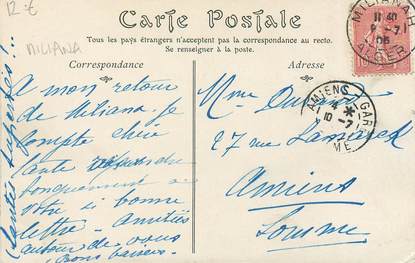 12 €
MILIANA
Carte Postale
Tous les pays étrangers n'acceptent pas la correspondance au recto.
Se renseigner à la poste.
Correspondance
Adresse
MILIANA
11 40
9 -7
06
ALGER
AMIENS GARE
10 -7
ME
A mon retour
de Miliana. je
compte chère
tante répondre
longuement à
votre si bonne
lettre - amitiés
autour de vous
Bons baisers.
(Santés superbes!..
Mme
27 rue
Amiens
Somme